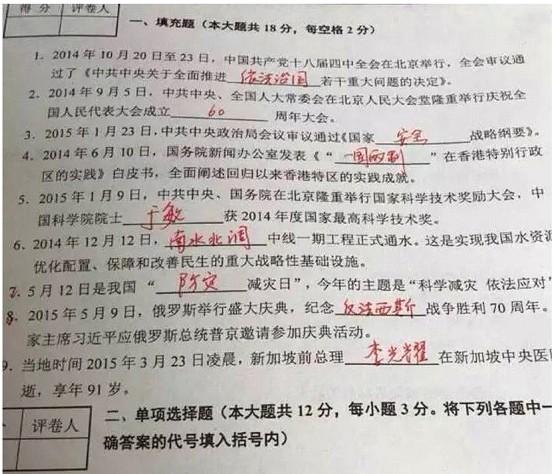 得 分 评卷人
一、填充题（本大题共 18 分，每空格 2 分）
1. 2014 年 10 月 20 日至 23 日，中国共产党十八届四中全会在北京举行，全会审议通
过了《中共中央关于全面推进 依法治国 若干重大问题的决定》。
2. 2014 年 9 月 5 日，中共中央、全国人大常委会在北京人民大会堂隆重举行庆祝全
国人民代表大会成立 60 周年大会。
3. 2015 年 1 月 23 日，中共中央政治局会议审议通过《国家 安全 战略纲要》。
4. 2014 年 6 月 10 日，国务院新闻办公室发表《“ 一国两制 ”在香港特别行政
区的实践》白皮书，全面阐述回归以来香港特区的实践成就。
5. 2015 年 1 月 9 日，中共中央、国务院在北京隆重举行国家科学技术奖励大会，中
国科学院院士 于敏 获 2014 年度国家最高科学技术奖。
6. 2014 年 12 月 12 日，南水北调 中线一期工程正式通水。这是实现我国水资源
优化配置、保障和改善民生的重大战略性基础设施。
7. 5 月 12 日是我国“ 防灾 减灾日”，今年的主题是“科学减灾 依法应对”
8. 2015 年 5 月 9 日，俄罗斯举行盛大庆典，纪念 反法西斯 战争胜利 70 周年。
家主席习近平应俄罗斯总统普京邀请参加庆典活动。
9. 当地时间 2015 年 3 月 23 日凌晨，新加坡前总理 李光耀 在新加坡中央医
逝，享年 91 岁。
评卷人
二、单项选择题（本大题共 12 分，每小题 3 分。将下列各题中一
确答案的代号填入括号内）